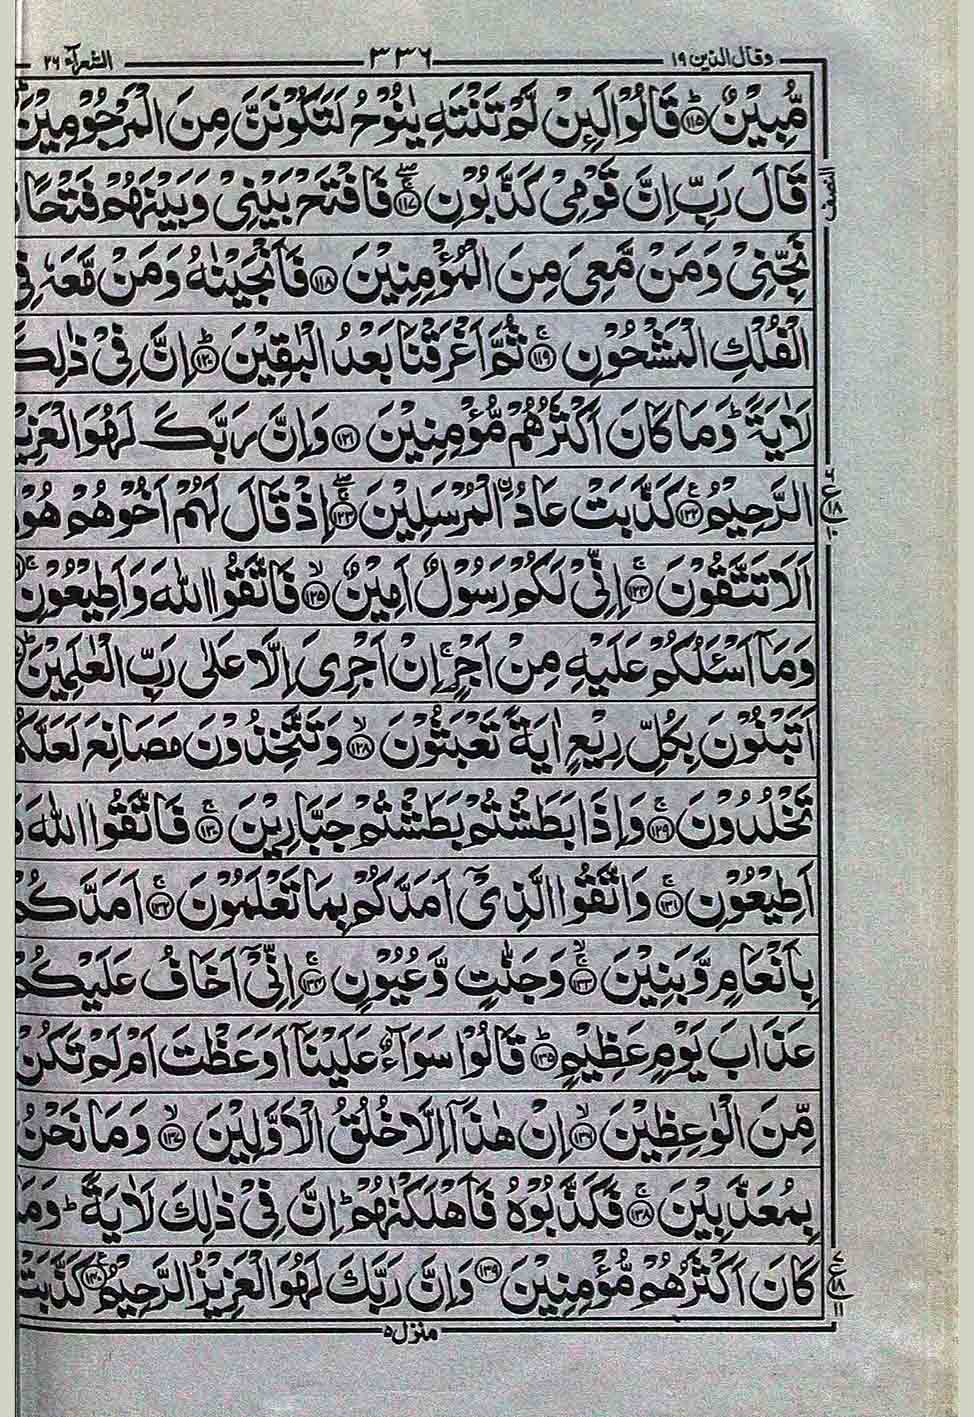 وقال الذین ۱۹ ۳۳۶ الشعرآء ۲۶
مُّبِیْنٌ ۱۱۵ قَالُوْا لَئِنْ لَّمْ تَنْتَهِ یٰنُوْحُ لَتَكُوْنَنَّ مِنَ الْمَرْجُوْمِیْنَ
النصف
قَالَ رَبِّ اِنَّ قَوْمِیْ كَذَّبُوْنِ ۱۱۷ فَافْتَحْ بَیْنِیْ وَبَیْنَهُمْ فَتْحًا
نَجِّنِیْ وَمَنْ مَّعِیَ مِنَ الْمُؤْمِنِیْنَ ۱۱۸ فَاَنْجَیْنٰهُ وَمَنْ مَّعَهٗ فِی
الْفُلْكِ الْمَشْحُوْنِ ۱۱۹ ثُمَّ اَغْرَقْنَا بَعْدُ الْبٰقِیْنَ ۱۲۰ اِنَّ فِیْ ذٰلِكَ
لَاٰیَةً وَمَا كَانَ اَكْثَرُهُمْ مُّؤْمِنِیْنَ ۱۲۱ وَاِنَّ رَبَّكَ لَهُوَ الْعَزِیْزُ
الرَّحِیْمُ ۱۲۲ كَذَّبَتْ عَادُ الْمُرْسَلِیْنَ ۱۲۳ اِذْ قَالَ لَهُمْ اَخُوْهُمْ هُوْدٌ
ع ۱۸ ۱۰
اَلَا تَتَّقُوْنَ ۱۲۴ اِنِّیْ لَكُمْ رَسُوْلٌ اَمِیْنٌ ۱۲۵ فَاتَّقُوا اللّٰهَ وَاَطِیْعُوْنِ
وَمَاۤ اَسْـَٔلُكُمْ عَلَیْهِ مِنْ اَجْرٍ اِنْ اَجْرِیَ اِلَّا عَلٰی رَبِّ الْعٰلَمِیْنَ
اَتَبْنُوْنَ بِكُلِّ رِیْعٍ اٰیَةً تَعْبَثُوْنَ ۱۲۸ وَتَتَّخِذُوْنَ مَصَانِعَ لَعَلَّكُمْ
تَخْلُدُوْنَ ۱۲۹ وَاِذَا بَطَشْتُمْ بَطَشْتُمْ جَبَّارِیْنَ ۱۳۰ فَاتَّقُوا اللّٰهَ وَ
اَطِیْعُوْنِ ۱۳۱ وَاتَّقُوا الَّذِیْۤ اَمَدَّكُمْ بِمَا تَعْلَمُوْنَ ۱۳۲ اَمَدَّكُمْ
بِاَنْعَامٍ وَّبَنِیْنَ ۱۳۳ وَجَنّٰتٍ وَّعُیُوْنٍ ۱۳۴ اِنِّیْۤ اَخَافُ عَلَیْكُمْ
عَذَابَ یَوْمٍ عَظِیْمٍ ۱۳۵ قَالُوْا سَوَآءٌ عَلَیْنَاۤ اَوَعَظْتَ اَمْ لَمْ تَكُنْ
مِّنَ الْوٰعِظِیْنَ ۱۳۶ اِنْ هٰذَاۤ اِلَّا خُلُقُ الْاَوَّلِیْنَ ۱۳۷ وَمَا نَحْنُ
بِمُعَذَّبِیْنَ ۱۳۸ فَكَذَّبُوْهُ فَاَهْلَكْنٰهُمْ اِنَّ فِیْ ذٰلِكَ لَاٰیَةً وَمَا
كَانَ اَكْثَرُهُمْ مُّؤْمِنِیْنَ ۱۳۹ وَاِنَّ رَبَّكَ لَهُوَ الْعَزِیْزُ الرَّحِیْمُ ۱۴۰ كَذَّبَتْ
ع ۱۸ ۱۱
منزل ۵